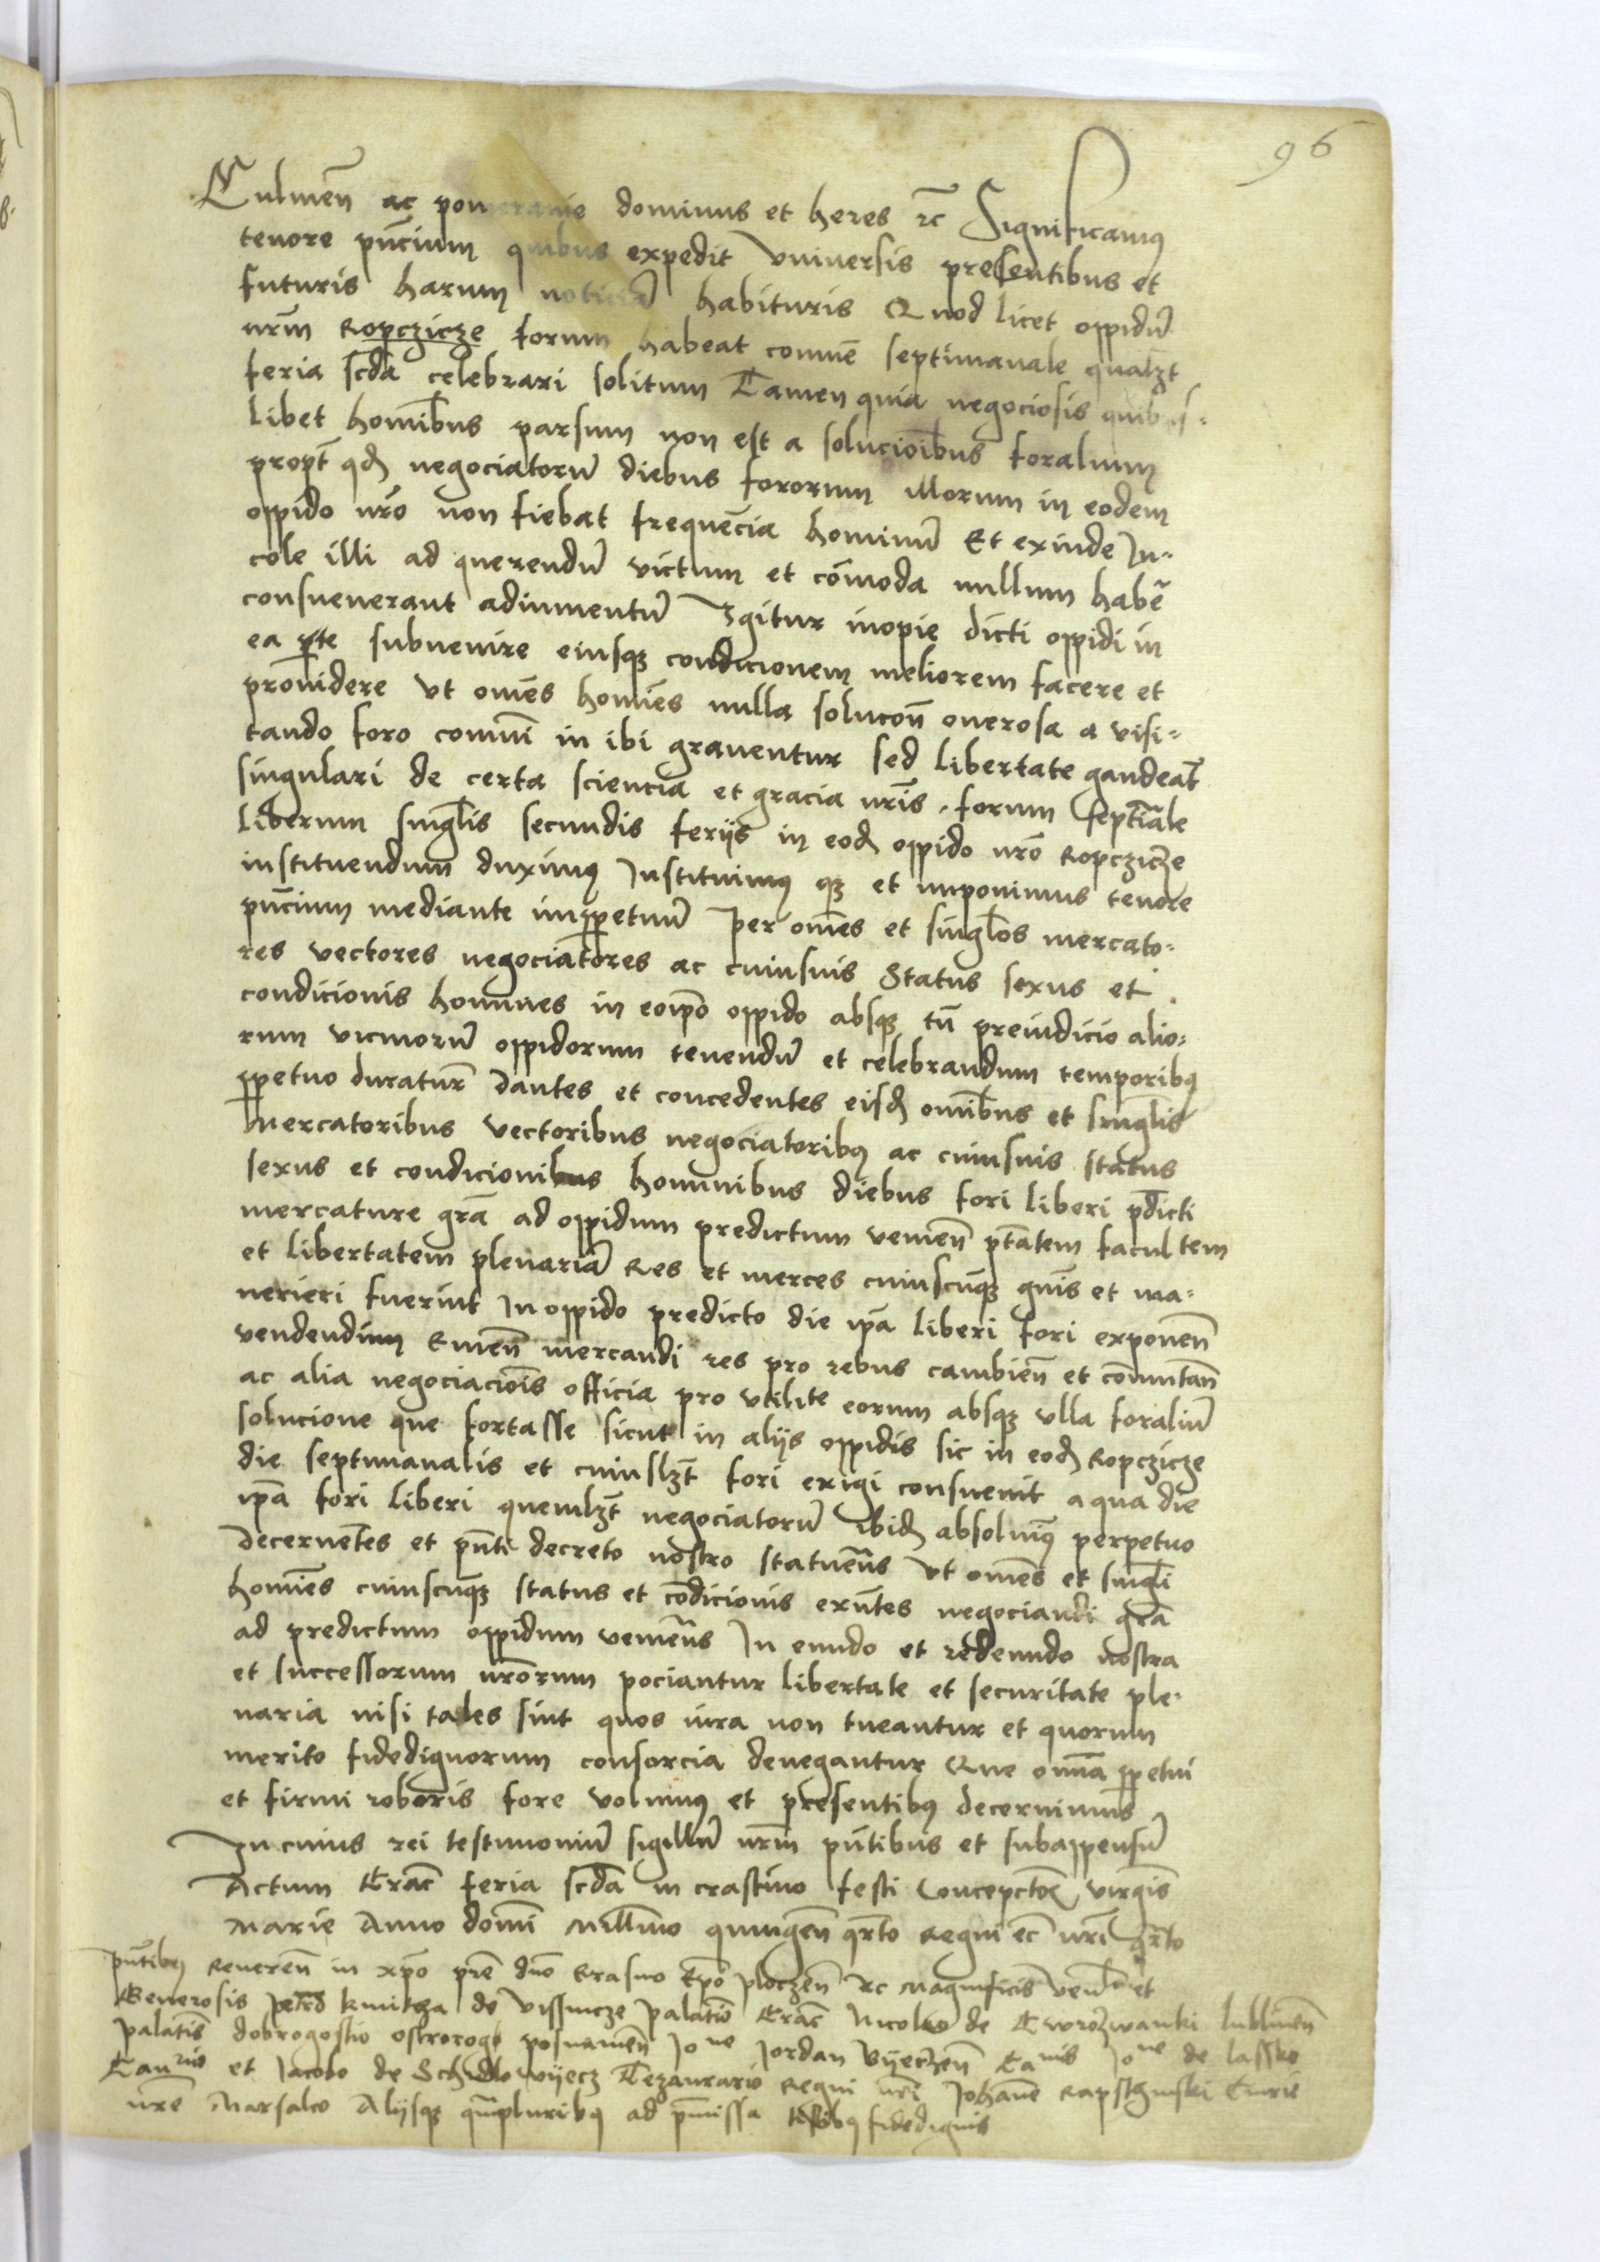 96
Culmen̄ ac pomeranie dominus et heres rc̄ Significamus
tenore pn̄cium quibus expedit Vniuersis presentibus et
futuris harum noticiā habituris Quod licet oppidū
nrm̄ Ropczicze forum habeat comūe septimanale qualꝫt
feria scd̄a celebrari solitum Tamen quia negociosis quibus-
libet homībus parsum non est a solucioībus foralium
propt̄ qd̄ negociatorū diebus fororum illorum in eodem
oppido nrō non fiebat frequēcia hominū Et exinde In-
cole illi ad querendū victum et cōmoda nullum habē
consueuerant adiumentū Igitur inopie dicti oppidi in
ea ꝑte subuenire eiusqꝫ condicionem meliorem facere et
prouidere Vt om̄es homīes nulla solucōn̄ onerosa a visi-
tando foro comuī in ibi grauentur sed libertate gaudeāt
singulari de certa sciencia et gracia nrīs forum septīāle
liberum singlīs secundis ferijs in eod̄ oppido nrō Ropczicze
instituendum duximus Instituimus qꝫ et imponimus tenore
pn̄cium mediante imꝑpetuū Per om̄es et singlōs mercato-
res vectores negociatores ac cuiusuis Status sexus et
condicionis homines in eoip̄o oppido absqꝫ tn̄ preiudicio alio-
rum vicinorū oppidorum tenendū et celebrandum temporibus
ꝑpetuo duratur̄ Dantes et concedentes eisd̄ omībus et singlīs
Mercatoribus vectoribus negociatoribus ac cuiusuis status
sexus et condicionibus hominibus diebus fori liberi pdīcti
mercature grā ad oppidum predictum venien̄ ptātem facultem
et libertatem plenariā Res et merces cuiuscūqꝫ gn̄is et ma-
nerieri fuerint In oppido predicto die ip̄a liberi fori exponen̄
vendendium Emen̄ mercandi res pro rebus cambien̄ et cōmutan̄
ac alia negociacioīs officia pro vtilite eorum absqꝫ vlla foraliū
solucione que fortasse sicut in alijs oppidis sic in eod̄ Ropczicze
die septimanalis et cuiuslꝫt fori exigi consueuit a qua die
ip̄a fori liberi quemlꝫt negociatorū ibid̄ absoluim̄us perpetuo
Decernentes et pn̄ti decreto nostro statuen̄s Vt om̄es et singlī
homīes cuiuscūqꝫ status et cōdicionis exn̄tes negociandi grā
ad predictum oppidum venien̄s In eundo et redeundo nostra
et successorum nrōrum pociantur libertate et securitate ple-
naria nisi tales sint quos iura non tueantur et quorum
merito fidedignorum consorcia denegantur Que omnīa ꝑpetui
et firmi roboris fore volumus et presentibus decernimus
In cuius rei testimoniū sigillū nrm̄ pn̄tibus et subappensū
Actum Crac̄ feria scd̄a in crastino festi Concepctōe Virgīs
Marie Anno domī Millīmo quingen̄ qrto Regni ec̄ nrī qrto
pn̄tibus Reueren̄ in xpō prē dnō Erasmo Ep̄o ploczen̄ rc Magnificis Ven̄b et
Generosis petro kmitha de vissnicze palatīo Crac̄ Nicolao de Cwrozwanki lublinen̄
palatīs dobrogostio ostrorogk posnanien̄ Ioⁿᵉ Iordan Byeczen̄ Caⁿⁱˢ Ioⁿᵉ de lassko
Canʳⁱᵒ et Iacobo de Schidlowijecz Tezaurario Regni nrī Johāne Rapsthinski Curie
nrē Marsalco Alijsqꝫ qmpluribus ad pmissa testibus fidedignis